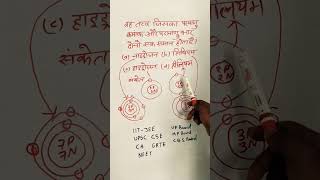 वह तत्व जिसका परमाणु
क्रमांक और परमाणु भार
दोनों एक समान होता है।
(a) नाइट्रोजन (b) लिथियम
(c) हाइड्रोजन (d) हीलियम
संकेत
(c) हाइड्रो
संकेत
7P
7N
3P
IIT-JEE UP Board
UPSC CSE MP Board
CA GATE CBSE Board
NEET